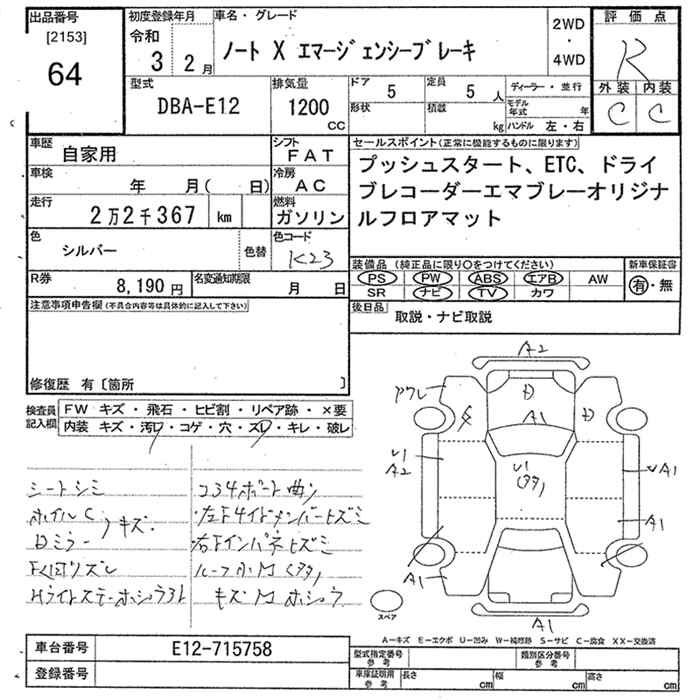 出品番号
[2153]
64
初度登録年月
令和
3 2月
車名・グレード
ノート X エマージェンシーブレーキ
2WD
・
4WD
評価点
R
外装 内装
C C
型式
DBA-E12
排気量
1200
CC
ドア 5
定員 5 人
形状
積載
kg
ディーラー・並行
モデル年式 年
ハンドル 左・右
車歴
自家用
シフト
FAT
車検
年 月( 日)
冷房
AC
走行
2万2千367 km
燃料
ガソリン
色
シルバー
色替
色コード
K23
R券
8,190円
名変通知期限
月 日
セールスポイント(正常に機能するものに限ります)
プッシュスタート、ETC、ドライ
ブレコーダーエマブレーオリジナ
ルフロアマット
装備品(純正品に限り〇をつけてください)
PS PW ABS エアB AW
SR ナビ TV カワ
新車保証書
有・無
後日品
取説・ナビ取説
注意事項申告欄(不具合内容等は具体的に記入して下さい)
修復歴 有〔箇所 〕
検査員記入欄
FW キズ・飛石・ヒビ割・リペア跡・×要
内装 キズ・汚レ・コゲ・穴・スレ・キレ・破レ
シートシミ
ホイルC
キズ
Dミラー
コシ4ボート曲り
左F4イドメンバーヒズミ
右Fインパネヒズミ
A2
A1
A1
U1
A2
A1
A1
A1
A1
スペア
A-キズ E-エクボ U-凹み W-補修跡 S-サビ C-腐食 XX-交換済
車台番号
E12-715758
登録番号
型式指定番号
参考
類別区分番号
参考
車庫証明用
参考
長さ cm
幅 cm
高さ cm